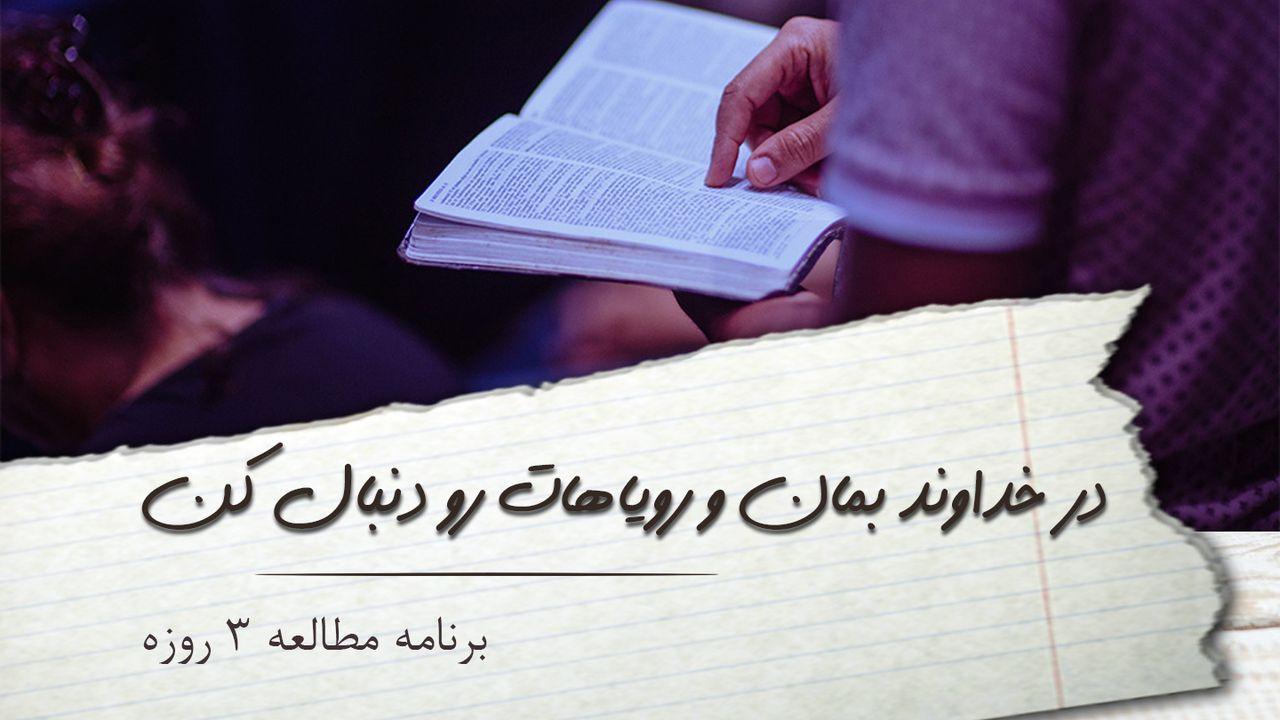 در خداوند بمان و رویاهات رو دنبال کن
برنامه مطالعه ۳ روزه